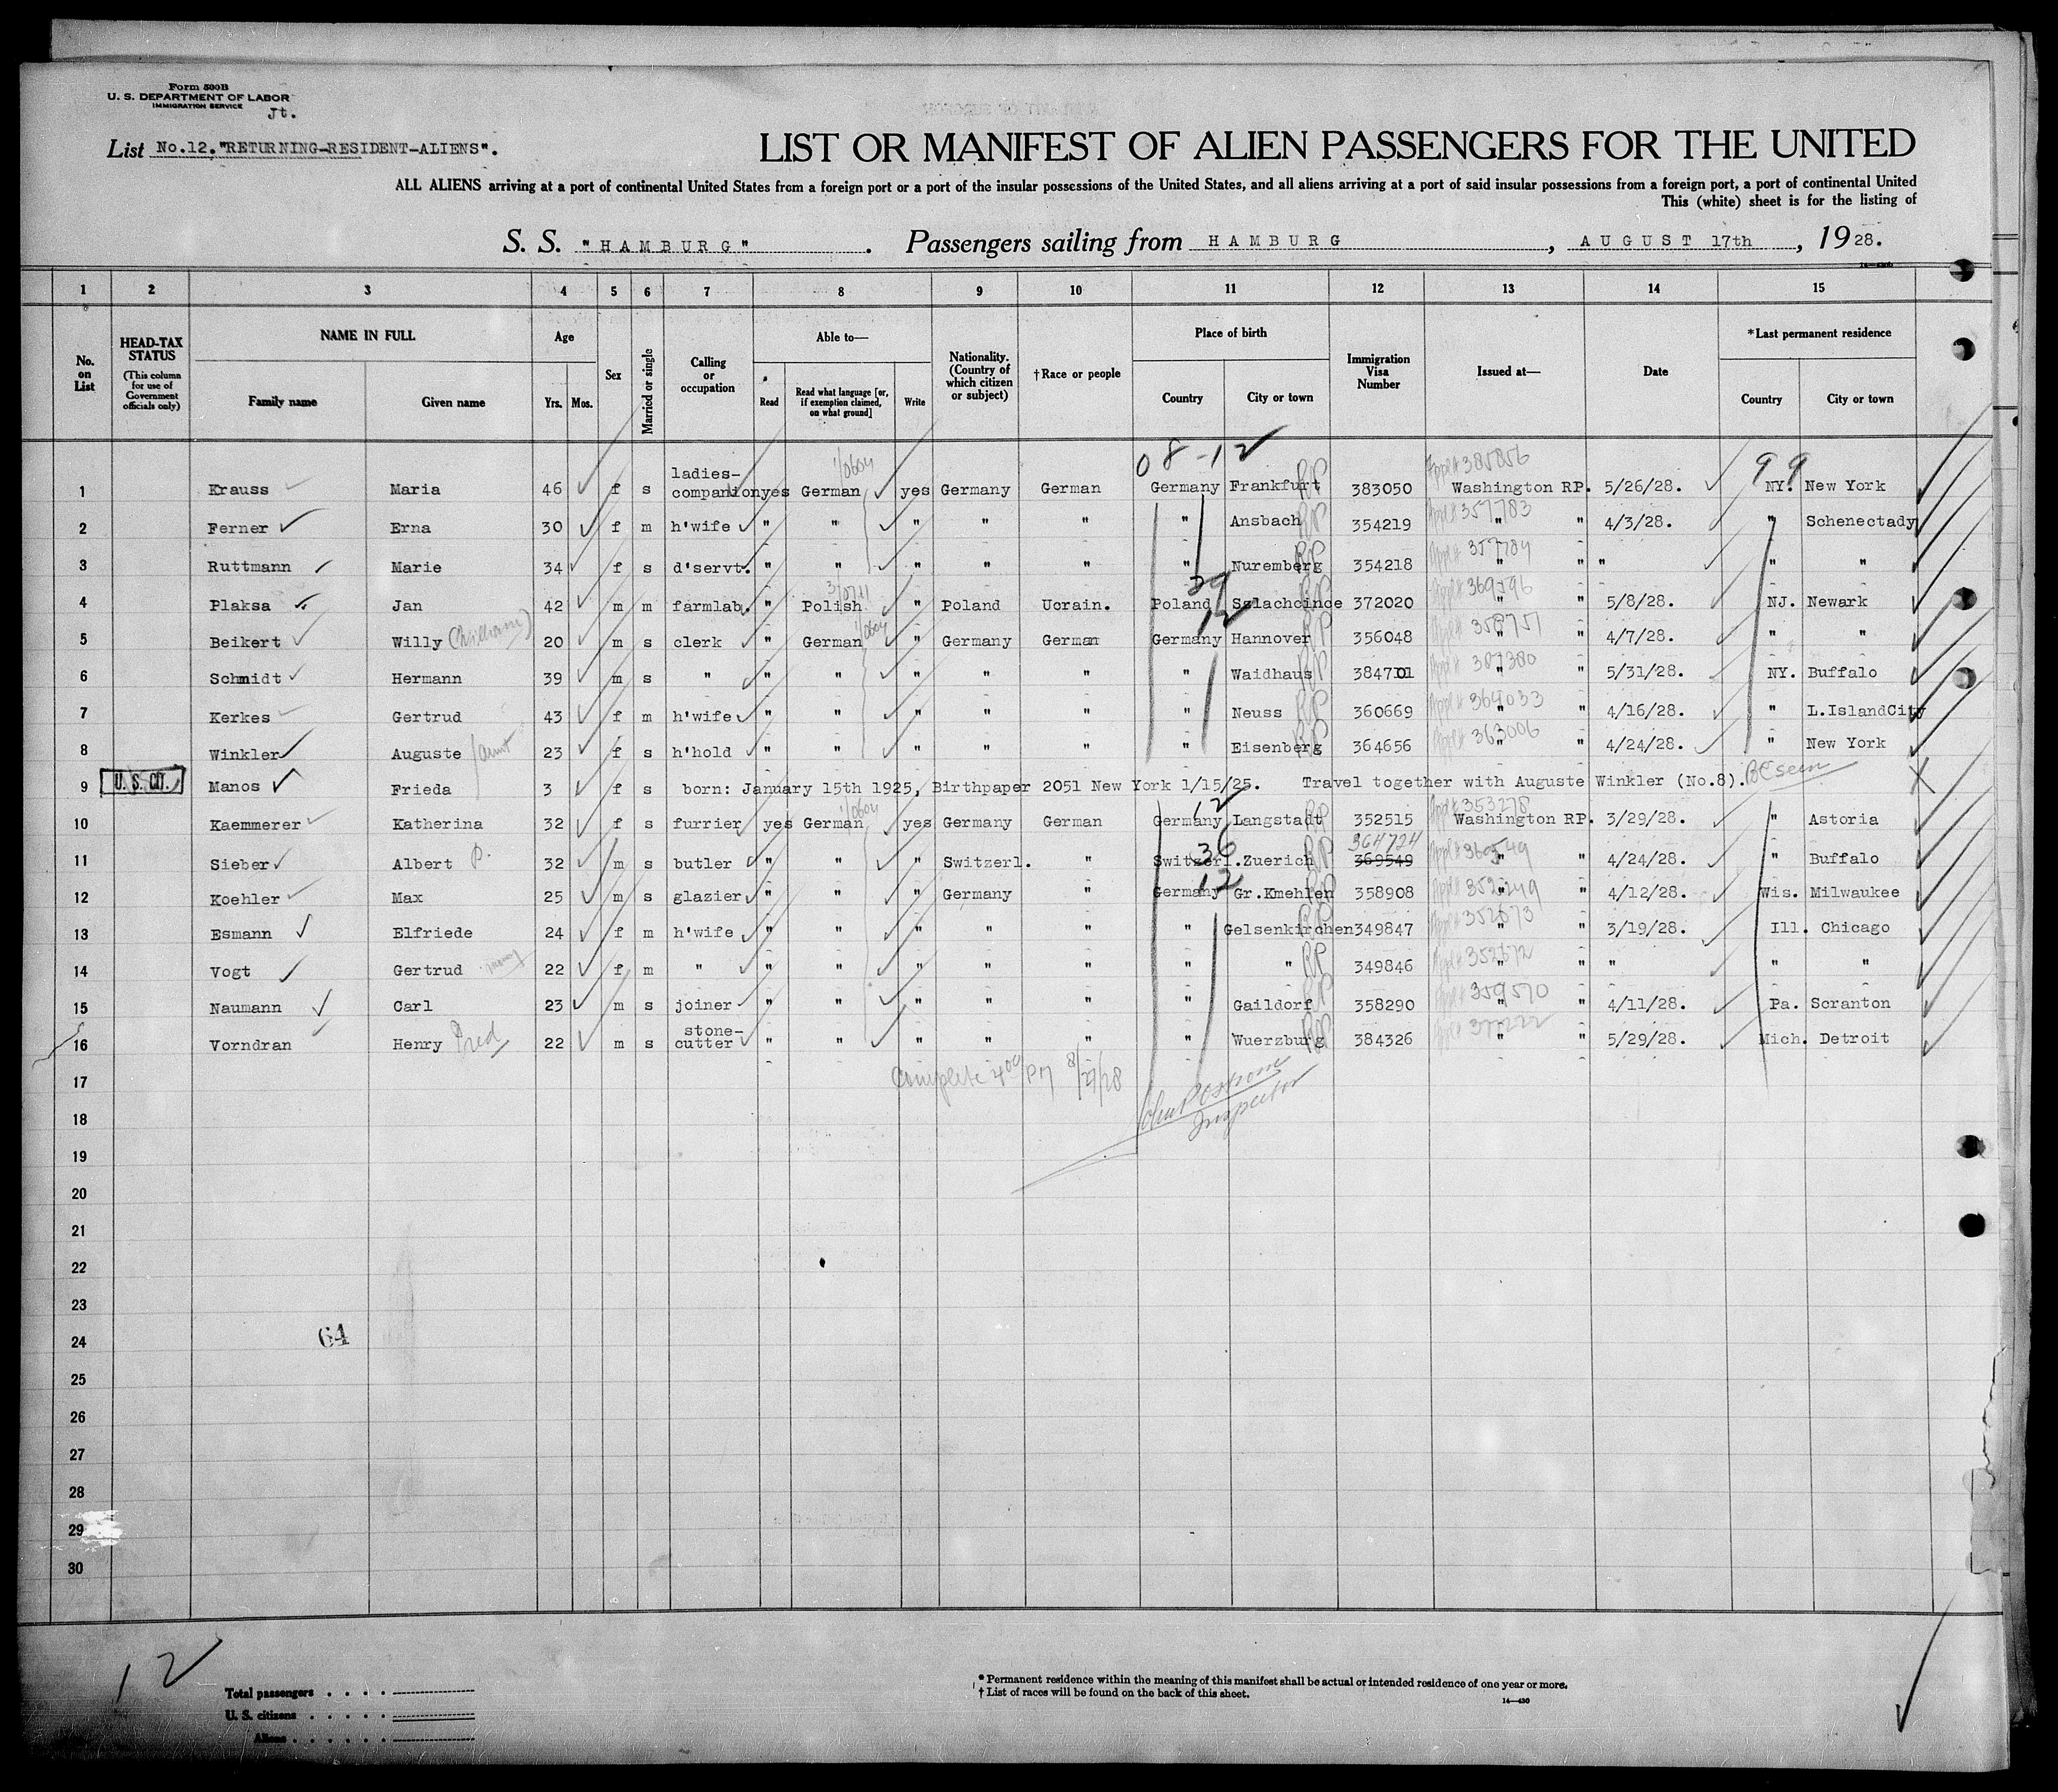 Form 500B
U. S. DEPARTMENT OF LABOR
IMMIGRATION SERVICE
Jt.
List No.12."RETURNING-RESIDENT-ALIENS".
LIST OR MANIFEST OF ALIEN PASSENGERS FOR THE UNITED
ALL ALIENS arriving at a port of continental United States from a foreign port or a port of the insular possessions of the United States, and all aliens arriving at a port of said insular possessions from a foreign port, a port of continental United
This (white) sheet is for the listing of
S. S. "HAMBURG" . Passengers sailing from HAMBURG , AUGUST 17th , 1928.
1 2 3 4 5 6 7 8 9 10 11 12 13 14 15
No. on List
HEAD-TAX STATUS (This column for use of Government officials only)
NAME IN FULL
Family name Given name
Age
Yrs. Mos.
Sex
Married or single
Calling or occupation
Able to—
Read
Read what language [or, if exemption claimed, on what ground]
Write
Nationality. (Country of which citizen or subject)
†Race or people
Place of birth
Country City or town
Immigration Visa Number
Issued at—
Date
*Last permanent residence
Country City or town
08-12 99
1 Krauss Maria 46 f s ladies-companion yes German yes Germany German Germany Frankfurt RP 383050 385856 Washington RP. 5/26/28. NY. New York
2 Ferner Erna 30 f m h'wife " " " " " " Ansbach RP 354219 357783 " " 4/3/28. " Schenectady
3 Ruttmann Marie 34 f s d'servt. " " " " " " Nuremberg RP 354218 357784 " " " " "
4 Plaksa Jan 42 m m farmlab. " Polish " Poland Ucrain. Poland 39 Szlachcince RP 372020 369796 " " 5/8/28. NJ. Newark
5 Beikert Willy (William) 20 m s clerk " German " Germany German Germany 12 Hannover RP 356048 358751 " " 4/7/28. " "
6 Schmidt Hermann 39 m s " " " " " " " Waidhaus RP 384701 387380 " " 5/31/28. NY. Buffalo
7 Kerkes Gertrud 43 f m h'wife " " " " " " Neuss RP 360669 364033 " " 4/16/28. " L.IslandCity
8 Winkler Auguste aunt 23 f s h'hold " " " " " " Eisenberg RP 364656 363006 " " 4/24/28. " New York
9 U. S. CIT. Manos Frieda 3 f s born: January 15th 1925, Birthpaper 2051 New York 1/15/25. Travel together with Auguste Winkler (No.8). BC seen X
10 Kaemmerer Katherina 32 f s furrier yes German yes Germany German Germany 12 Langstadt RP 352515 353278 Washington RP. 3/29/28. " Astoria
11 Sieber Albert P. 32 m s butler " " " Switzerl. " Switzerl. 36 Zuerich RP 364724 369549 " " 4/24/28. " Buffalo
12 Koehler Max 25 m s glazier " " " Germany " Germany 12 Gr.Kmehlen RP 358908 " " 4/12/28. Wis. Milwaukee
13 Esmann Elfriede 24 f m h'wife " " " " " " Gelsenkirchen RP 349847 352673 " " 3/19/28. Ill. Chicago
14 Vogt Gertrud 22 f m " " " " " " " " RP 349846 352672 " " " " "
15 Naumann Carl 23 m s joiner " " " " " " Gaildorf RP 358290 359570 " " 4/11/28. Pa. Scranton
16 Vorndran Henry Fred 22 m s stone-cutter " " " " " " Wuerzburg RP 384326 " " 5/29/28. Mich. Detroit
17 Complete 4 00 PM 8/27/28
18 Inspector
19
20
21
22
23
24 64
25
26
27
28
29
30
12
Total passengers
U. S. citizens
Aliens
* Permanent residence within the meaning of this manifest shall be actual or intended residence of one year or more.
† List of races will be found on the back of this sheet.
14—430